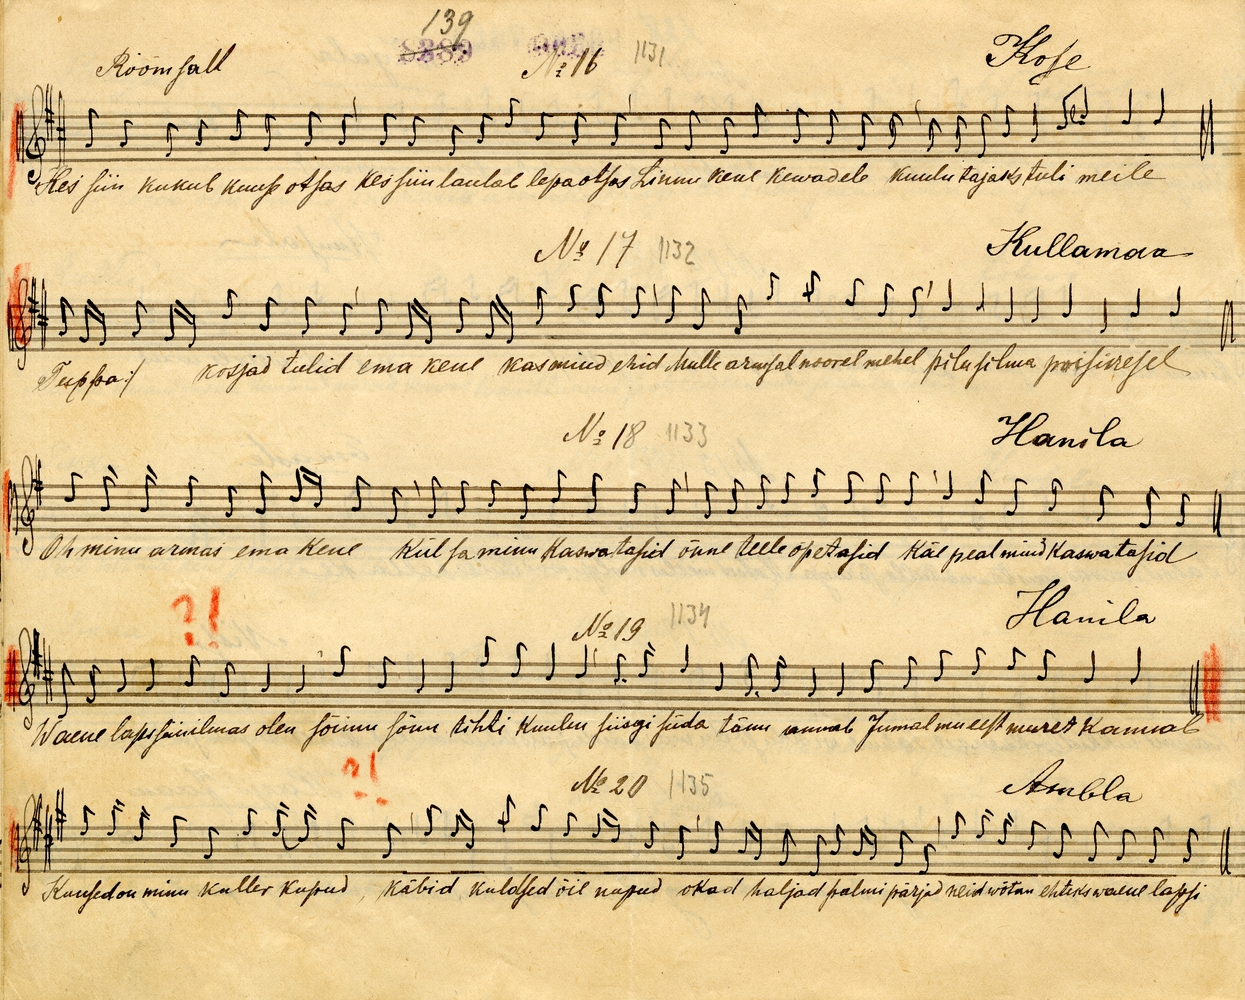 139
Rõõmsall № 16 1131 Kose
Kes siin kukub kuuse otsas kes siin laulab lepa otsas Linnu kene kewadele kuulutajaks tuli meile
№ 17 1132 Kullamaa
kosjad tulid ema kene kas miud ehid Mulle armsal noorel mehel pilu silma poisikesel
№ 18 1133 Hanila
Oh minu armas ema kene Kül sa minu kaswatasid õnne teele õpetasid Käe peal miud kaswatasid
?! № 19 1134 Hanila
Waene laps siin ilmas olen sõimu sõnu tihti kuulen siisgi süda tänu annab Jumal mu eest muret kannab
?! № 20 1135 Ambla
Kuused on minu kuller kupud, käbid kuldsed õie nupud okad haljad palmi pärjad neid wõtan ehteks waene lapsi